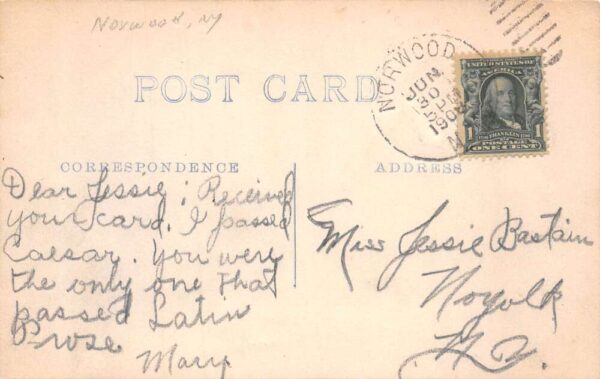 Norwood, NY
POST CARD
NORWOOD
JUN
30
190
N
UNITED STATES OF AMERICA
FRANKLIN
POSTAGE
1 ONE CENT 1
CORRESPONDENCE
ADDRESS
Dear Jessie; Received
your card. I passed
Caesar. You were
the only one that
passed Latin
Prose
Mary
Miss Jessie Bastain
Norfolk
N.Y.